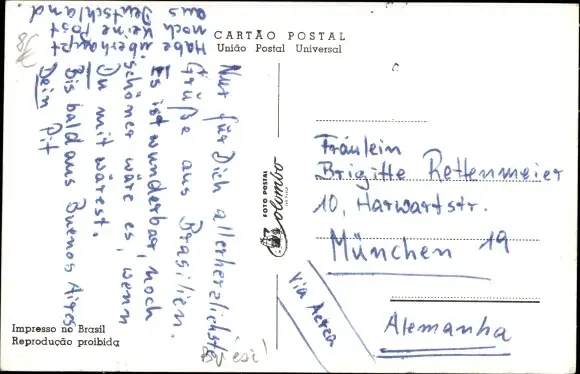 CARTÃO POSTAL
União Postal Universal
Nur für Dich allerherzlichste
Grüße aus Brasilien.
Es ist wunderbar, noch
schöner wäre es, wenn
Du mit wärest.
Bis bald aus Buenos Aires
Dein Pit
Habe überhaupt
noch keine Post
aus Deutschland
FOTO POSTAL
Colombo
Fräulein
Brigitte Rettenmeier
10, Harwartstr.
München 19
Via Aerea
Alemanha
Impresso no Brasil
Reprodução proibida